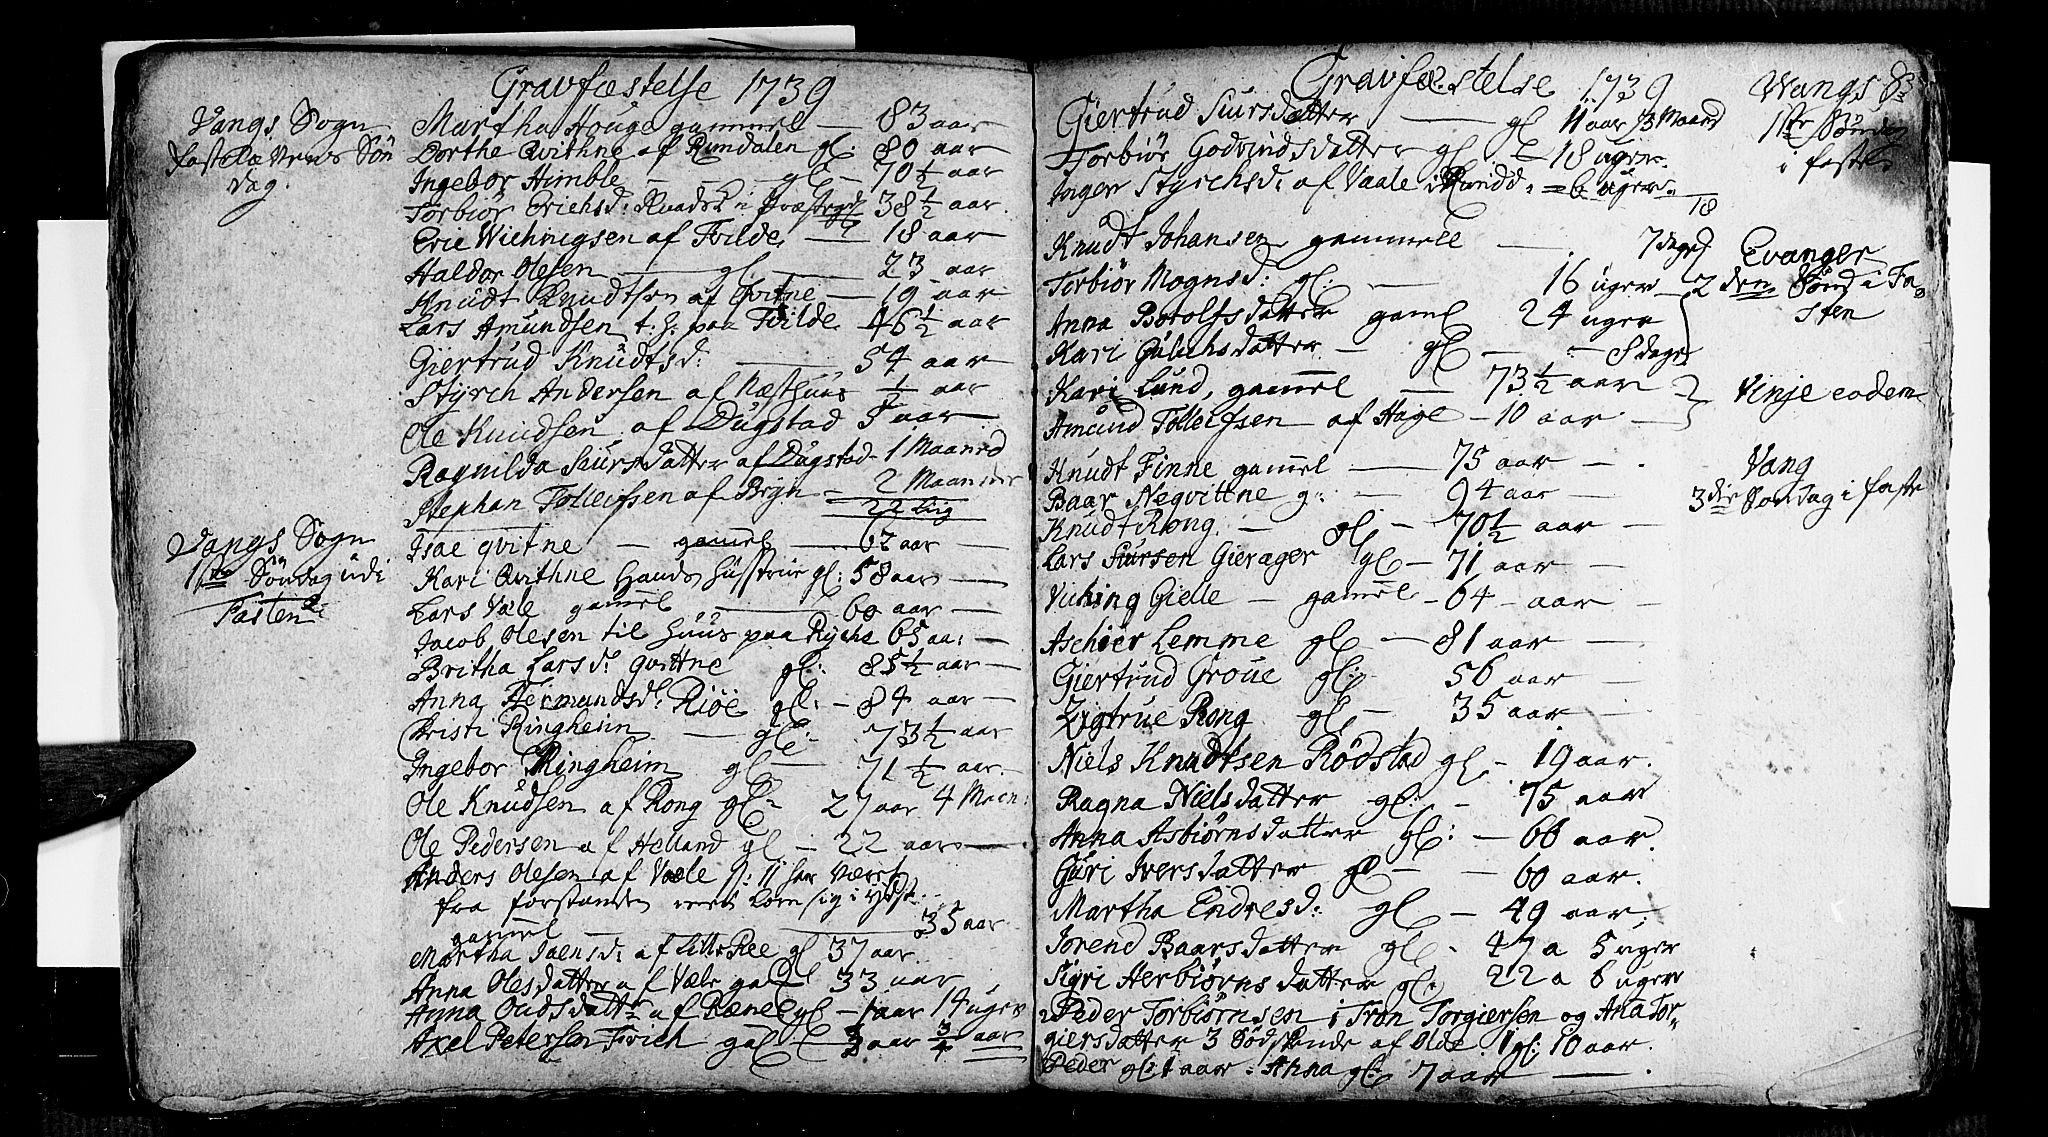 Gravfæstelse 1739
Vangs Sogn
fastelavens Søn
dag.
Martha Houge gammel — 83 aar
Dorthe Qvithne af Rundalen gl: 80 aar
Ingebor Himble — gl — 70½ aar
Torbiør Erichsd: i 38½ aar.
Eric Wichingsen af Tvilde — 18 aar
Haldor Olesen — gl. — 23 aar
Knudt Knudtsen af Qvitne — 19 aar
Lars Amundsen t: h: paa Tvilde 46½ aar
Giertrud Knudtsd: — 54 aar
Styrch Andersen af Næsthuus ½ aar
Ole Knudsen af Dugstad 5 aar
Ragnilda Siursdatter af Dugstad - 1 Maaned
Stephan Tolleifsen af Bryn - 2 Maaneder
22 Lig
Vangs Sogn
1ste Søndag udi
Fasten
Isac qvitne — gammel — 62 aar —
Kari Qvithne Hands Hustrue gl: 58 aar —
Lars Væle gammel — 60 aar —
Jacob Olesen til Huus paa Rychе 65 aa: —
Britha Larsd: qvittne gl: 85½ aar —
Anna Termundsd: Riøe gl: - 84 aar —
Kristi Ringheim — gl: - 73½ aar
Ingebor Ringheim gl — 71½ aar.
Ole Knudsen af Rong gl: 27 aar 4 Maan:
Ole Pedersen af Helland gl — 22 aar —
Anders Olesen af Væle 9: 11 har været
fra forstanden med
gammel — 35 aar
Martha Joensd: af Lille Ree gl 37 aar
Anna Olesdatter af Væle gal 33 aar
Anna Oudsdattr af Rene gl — 1 aar 14 uger
Axel Petersen Frich gal — aar ¾ aar
Gravfæstelse 1739
Wangs S:
1ste Søndag
i faste
Giertrud Siursdatter — gl 11 aar 3 Maand
Torbiør Godvindsdatter gl - 18 uger.
Inger Styrchsd: af Vaale i Rundd: = 6 uger.
18
Evanger
2den Sønd i Fa-
sten
Knudt Johansen gammell — 7 dage
Torbiør Mognsd: gl: — 16 uger
Anna Botolfsdatter gaml 24 uger
Kari Gulichsdatter — gl — 8 dage
Vinje eodem
Kari Lund, gammel — 73½ aar
Amund Tolleifsen af Hage — 10 aar
Vang
3die Søndag i faste
Knudt Finne gammel — 75 aar —
Baar Neqvittne g: — 94 aar —
Knudt Rong. — gl, — 70½ aar —
Lars Siursen Gierager gl — 71 aar —
Viching Gielle — gammel - 64 - aar —
Aschier Lemme gl — 81 aar —
Giertrud Groue gl: 56 aar —
Zigtrue Rong gl, — 35 aar —
Niels Knudtsen Rødstad gl, - 19 aar.
Ragna Nielsdatter gl: - 75 aar
Anna Asbiørnsdatter gl: — 66 aar.
Guri Iversdatter gl — — 60 aar.
Martha Endresd: gl — 49 aar.
Jorend Baarsdatter gl - 47 a 5 uger
Sigri Herbiørnsdatter gl: 22 a 6 uger
Peder Torbiørnsen i Tron Torgiersen og Ana Tor-
giersdatter 3 Sødskende af Olde 1 gl: 10 aar.
Peder gl: 1 aar. Anna gl: 7 aar —